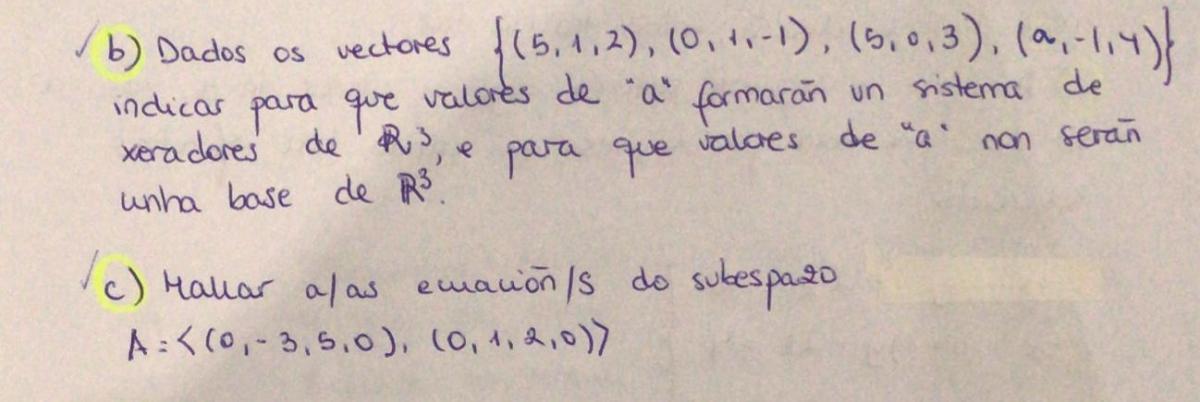 b) Dados os vectores {(5, 1, 2), (0, 1, -1), (5, 0, 3), (a, -1, 4)}
indicar para que valores de "a" formarán un sistema de
xeradores de ℝ³, e para que valores de "a" non serán
unha base de ℝ³.
c) Hallar a/as ecuación/s do subespazo
A = <(0, -3, 5, 0), (0, 1, 2, 0)>